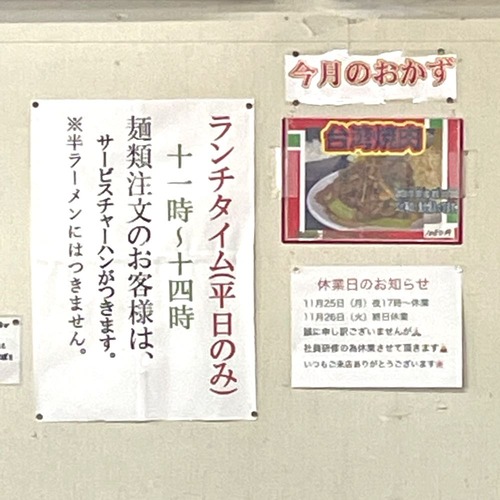 ランチタイム(平日のみ)
十一時〜十四時
麺類注文のお客様は、
サービスチャーハンがつきます。
※半ラーメンにはつきません。
今月のおかず
台湾焼肉
休業日のお知らせ
11月25日（月）夜17時〜休業
11月26日（火）終日休業
誠に申し訳ございませんが🙏
社員研修の為休業させて頂きます🙇
いつもご来店ありがとうございます